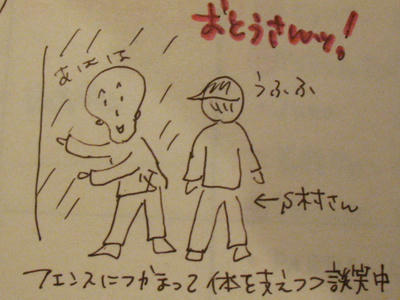 おとうさんッ!
あはは
うふふ
←S村さん
フェンスにつかまって体を支えつつ談笑中